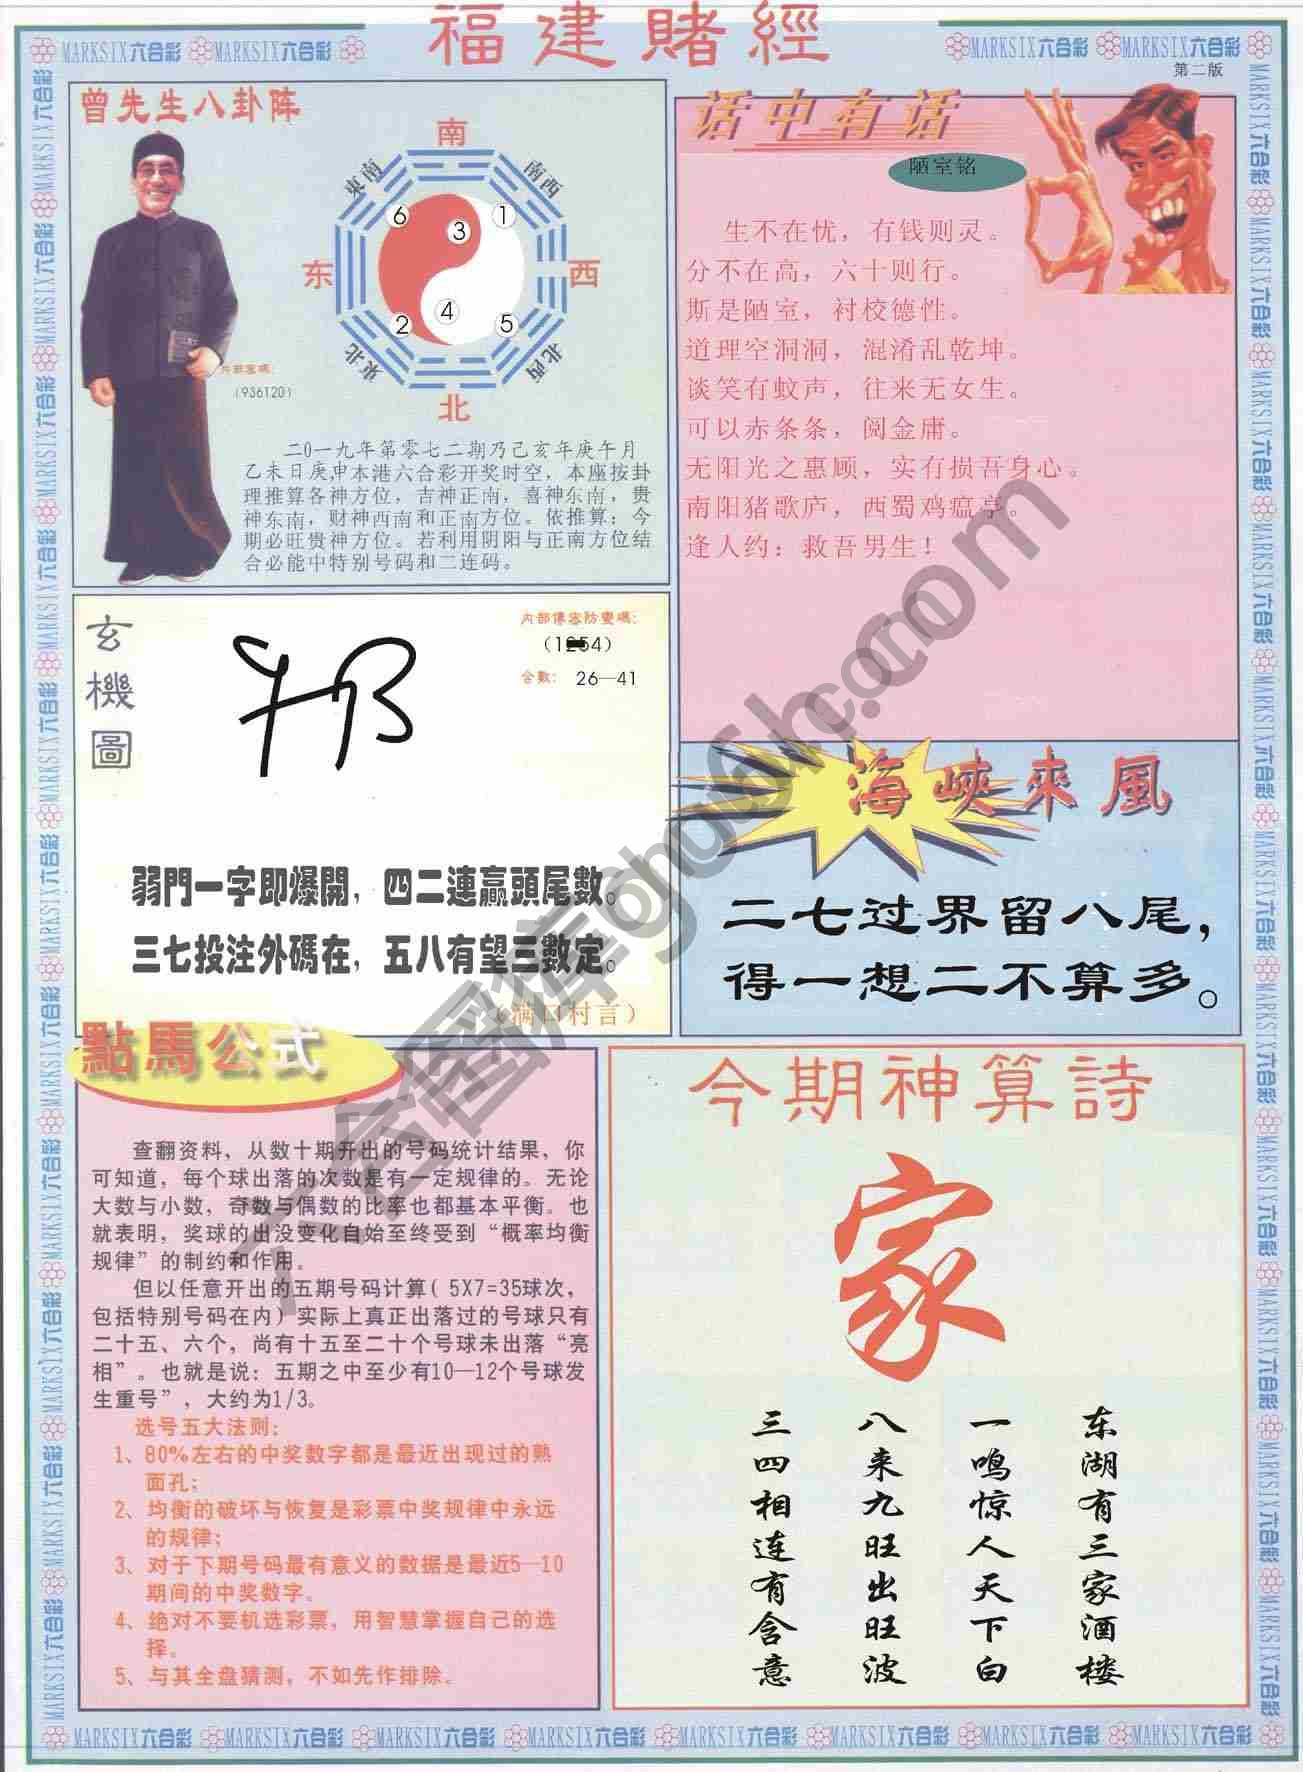 福建賭經
MARKSIX六合彩 MARKSIX六合彩
MARKSIX六合彩 MARKSIX六合彩
第二版
曾先生八卦阵
南
東南
南西
东
西
東北
北西
北
6
3
1
4
2
5
内部密碼：
（936120）
二〇一九年第零七二期乃己亥年庚午月
乙未日庚申本港六合彩开奖时空，本座按卦
理推算各神方位，吉神正南，喜神东南，贵
神东南，财神西南和正南方位。依推算：今
期必旺贵神方位。若利用阴阳与正南方位结
合必能中特别号码和二连码。
话中有话
陋室铭
生不在忧，有钱则灵。
分不在高，六十则行。
斯是陋室，衬校德性。
道理空洞洞，混淆乱乾坤。
谈笑有蚊声，往来无女生。
可以赤条条，阅金庸。
无阳光之惠顾，实有损吾身心。
南阳猪歌庐，西蜀鸡瘟亭。
逢人约：救吾男生！
玄機圖
内部傳密防變碼：
合數： 26—41
弱門一字即爆開，四二連贏頭尾數。
三七投注外碼在，五八有望三數定。
（满口村言）
海峽來風
二七过界留八尾，
得一想二不算多。
點馬公式
查翻资料，从数十期开出的号码统计结果，你
可知道，每个球出落的次数是有一定规律的。无论
大数与小数，奇数与偶数的比率也都基本平衡。也
就表明，奖球的出没变化自始至终受到“概率均衡
规律”的制约和作用。
但以任意开出的五期号码计算（5X7=35球次，
包括特别号码在内）实际上真正出落过的号球只有
二十五、六个，尚有十五至二十个号球未出落“亮
相”。也就是说：五期之中至少有10—12个号球发
生重号”，大约为1/3。
选号五大法则：
1、80%左右的中奖数字都是最近出现过的熟
面孔；
2、均衡的破坏与恢复是彩票中奖规律中永远
的规律；
3、对于下期号码最有意义的数据是最近5—10
期间的中奖数字。
4、绝对不要机选彩票，用智慧掌握自己的选
择。
5、与其全盘猜测，不如先作排除。
今期神算詩
家
东湖有三家酒楼
一鸣惊人天下白
八来九旺出旺波
三四相连有含意
MARKSIX六合彩 MARKSIX六合彩 MARKSIX六合彩 MARKSIX六合彩 MARKSIX六合彩 MARKSIX六合彩 MARKSIX六合彩 MARKSIX六合彩